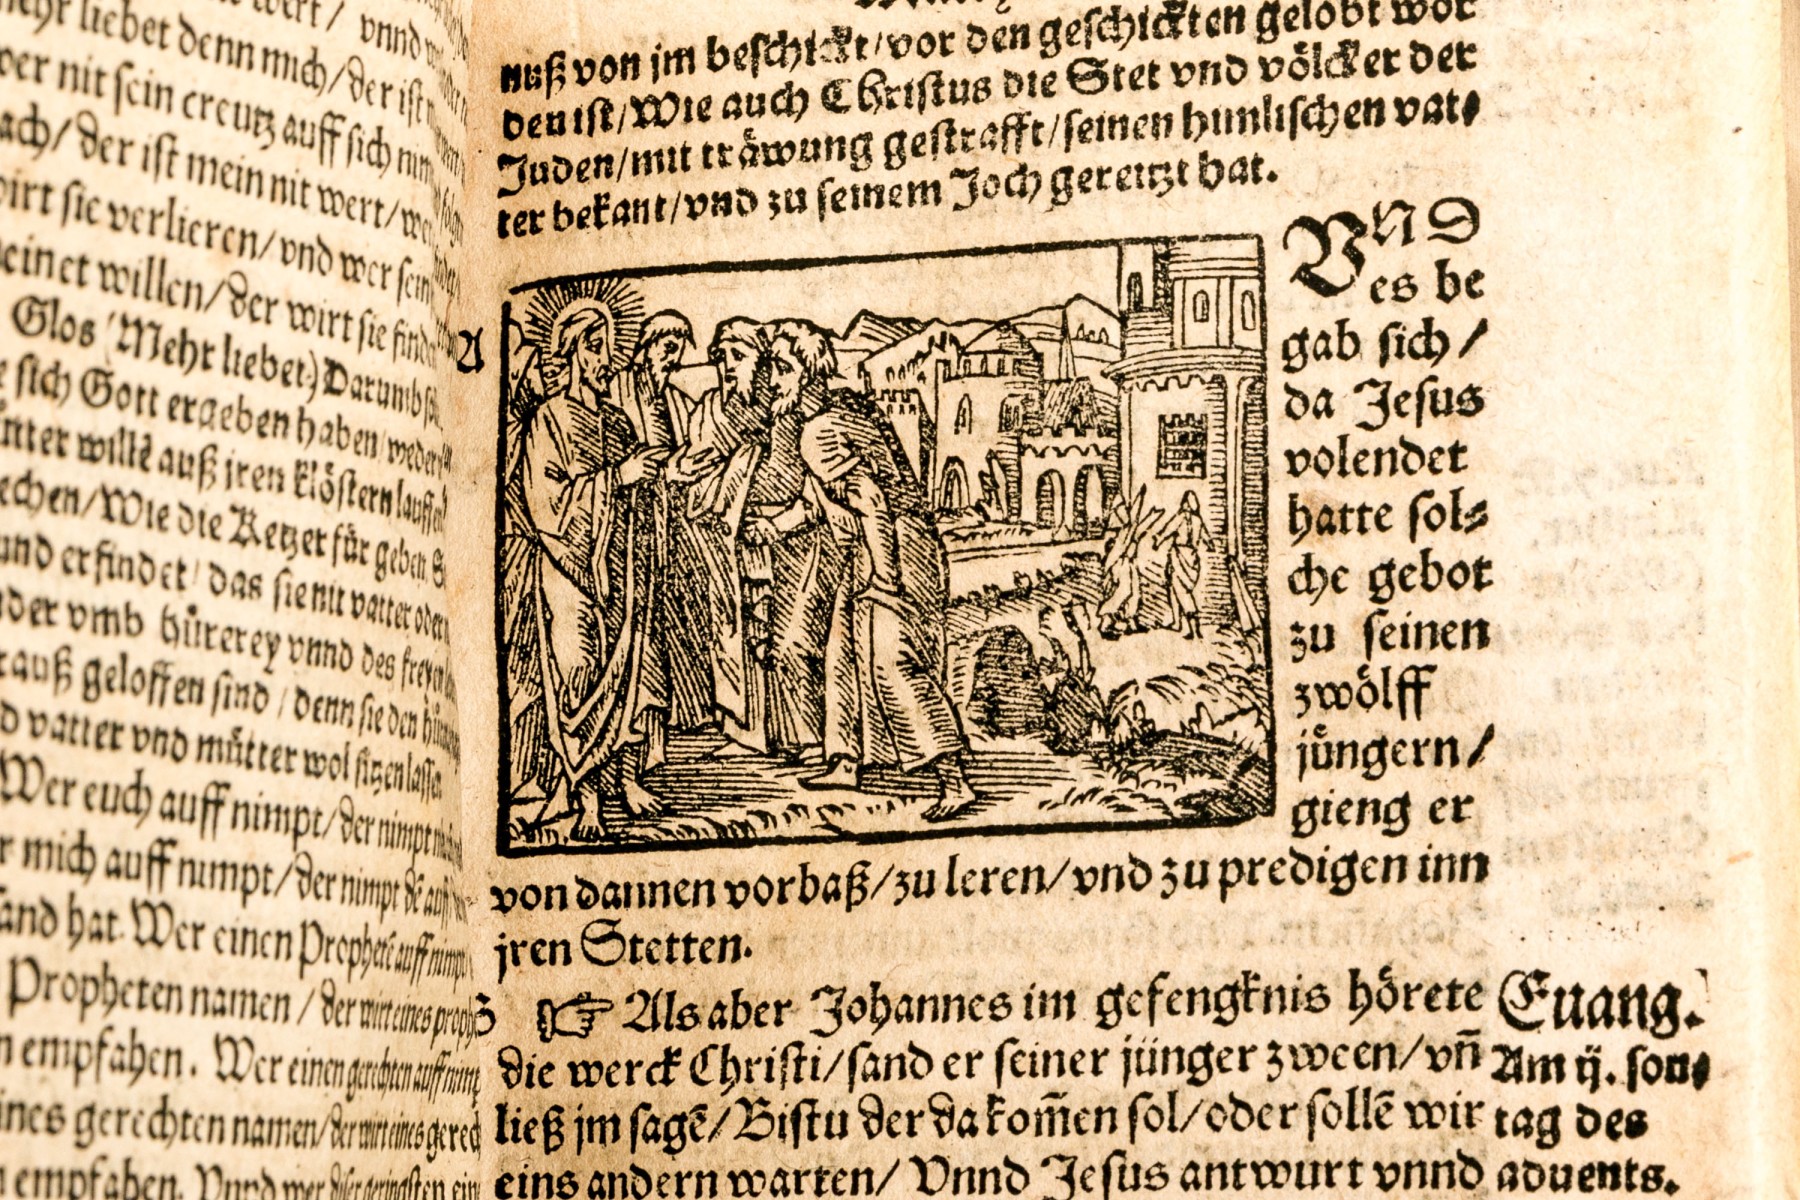 mehr liebet denn mich/der ist
wer nit sein creutz auff sich nim
nach/der ist mein nit wert/wer
wirt sie verlieren/vnd wer sein
meinet willen/der wirt sie find
Glos (Mehr liebet) Darumb
sich Gott ergeben haben weder
willē auß jren klöstern lauffen
/Wie die Ketzer für geben
vnd erfindet das sie nit vatter oder
vmb hůrerey vnnd des freyen
rauß geloffen sind/denn sie den
vatter vnd můtter wol sitzen lassen
Wer euch auff nimpt/der nimpt
mich auff nimpt/der nimpt dē auff
sand hat. Wer einen Prophetē auff nimpt
Propheten namen/der wirt eines proph
empfahen. Wer einen gerechten auff nimpt
eines gerechten namen/der wirt eines gerech
empfahen. Vnnd wer dieser geringsten ein
nuß von jm beschickt/vor den geschickten gelobt wor
den ist/Wie auch Christus die Stet vnd völcker der
Juden/mit träwung gestrafft/seinen himlischen vat⸗
ter bekant/vnd zu seinem Joch gereitzt hat.
A
VND
es be
gab sich/
da Jesus
volendet
hatte sol⸗
che gebot
zu seinen
zwölff
jüngern/
gieng er
von dannen vorbaß/zu leren/vnd zu predigen inn
jren Stetten.
B ☞ Als aber Johannes im gefengknis hörete
die werck Christi/sand er seiner jünger zween/vñ
ließ jm sagē/Bistu der da kom̄en sol/oder sollē wir
eins andern warten/Vnnd Jesus antwurt vnnd
Euang.
Am ij. son⸗
tag des
aduents.